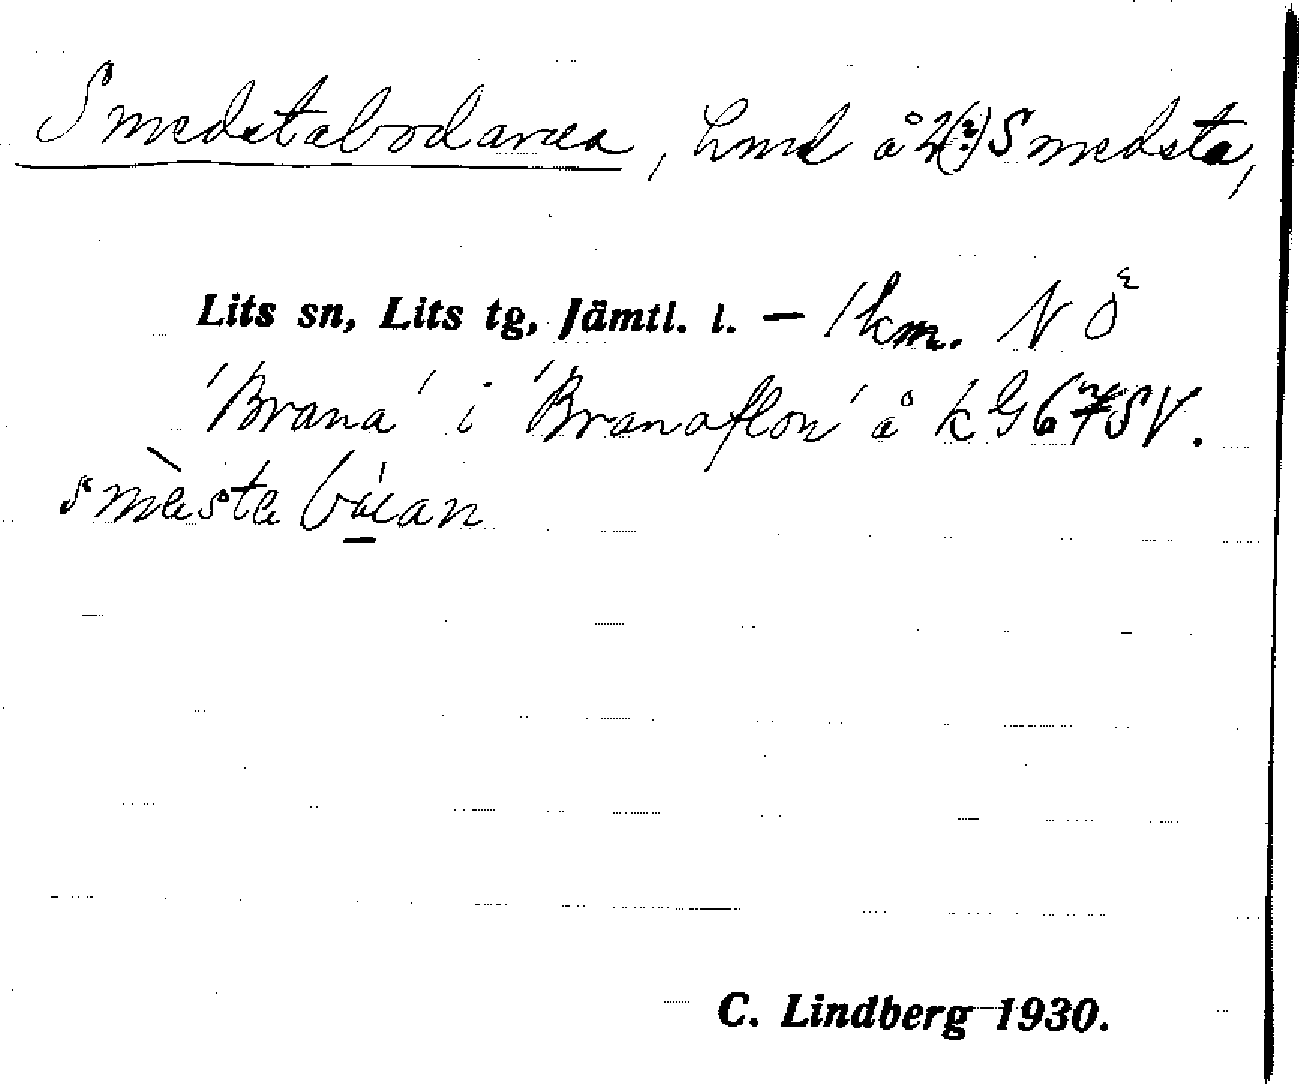 Smedstabodarna, hmd å 2(?) Smedsta,
Lits sn, Lits tg, Jämtl. l. — 1 km. N Ö
'Brana' i 'Branaflon' å k G 6 SV.
C. Lindberg 1930.